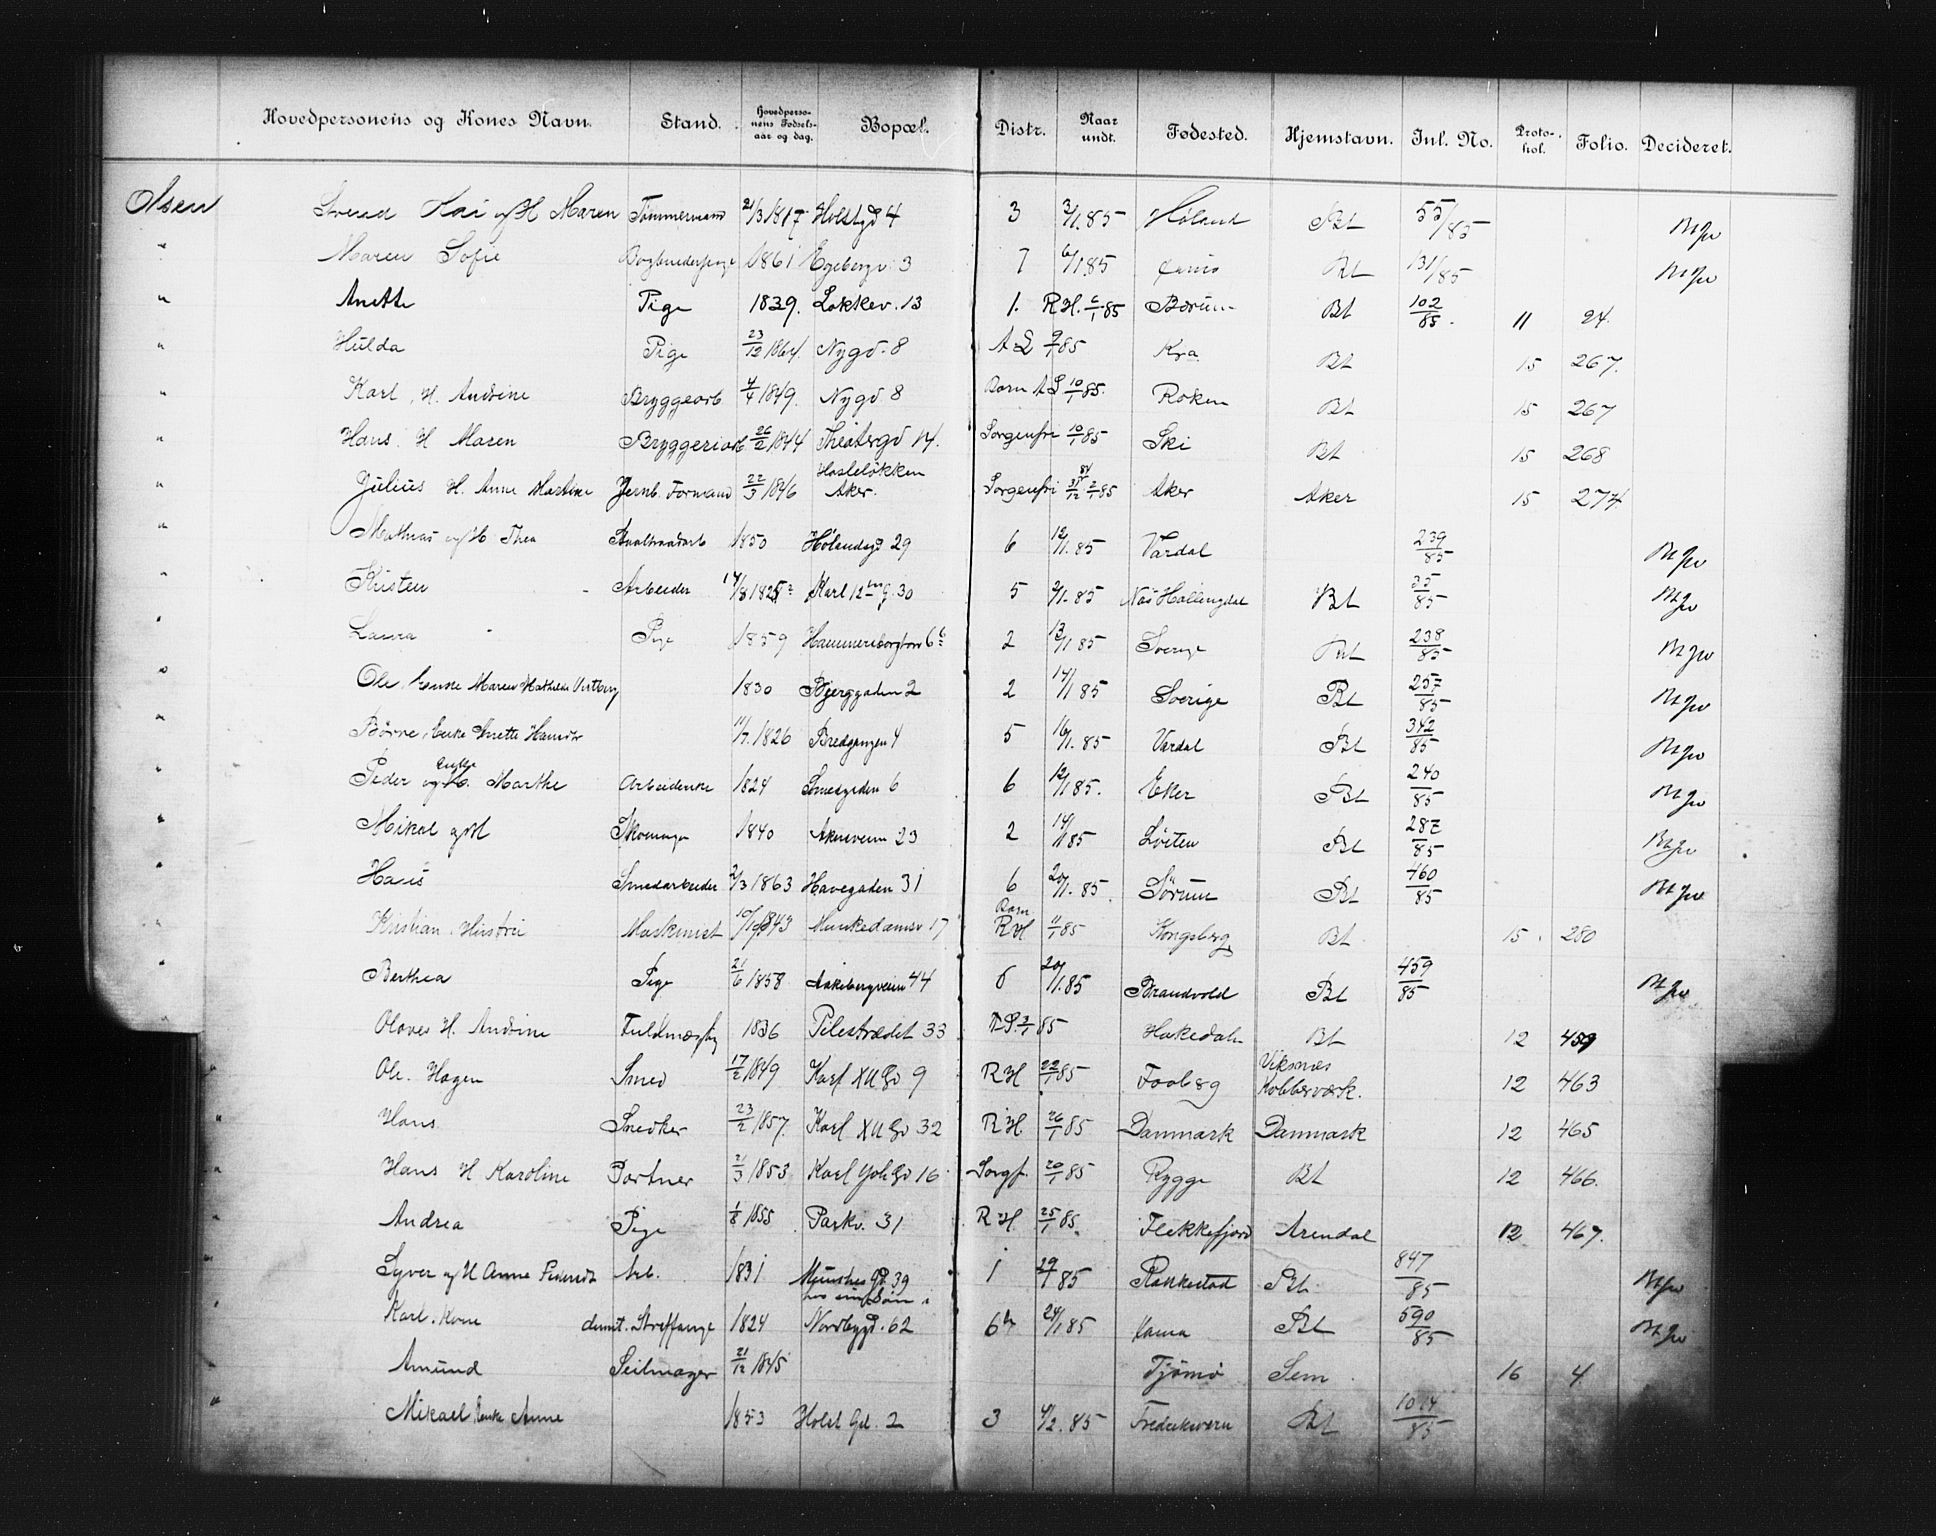 Hovedpersonens og Kones Navn. Stand. Hovedperso-nens Fødsels-aar og dag. Bopæl. Distr. Naar undt. Fødested. Hjemstavn. Jnl. No. Proto-kol. Folio. Decideret.
Olsen Svend Kai og H Maren Tømmermand 21/3 1817 Holstgd 4 3 3/1.85 Høland Bt 55/85
" Maren Sofie 1861 Egebergv 3 7 6/1 85 Bt 131/85
" Anette Pige 1839. Løkkev. 13 1. R.H. 2/1 85 Bærum Bt 102/85. 11 24.
" Hulda Pige 23/12 1864. Nygd. 8 A S 9/1 85 Kra Bt 15 267.
" Karl, H. Andrine Bryggearb 4/4 1849. Nygd 8 Barn A S 10/1 85. Røken Bt 15 267
" Hans. H Maren Bryggeriarb 26/2 1844 Theatergd 14. Sorgenfri 10/1 85 Ski Bt 15 268
" Julius H. Anne Martine Jernb. Formand 22/3 1846 Hasleløkken Aker. Sorgenfri 31/12 84 2/1 85 Aker Aker 15 274
" Mathias og H Thea 1850 Hølandsgd 29 6 12/1.85 Vardal 239/85
" Kristen Arbeider Karl 12te g. 30 5 2/1.85 Nas Hallingdal Bt 35/85
" Laura Pige 1859 Hammersborgtorv 6 2 13/1 85 Sverige Bt 238/85
" Ole, Enke Maren Mathilde 1830 Bjerggaden 2 2 14/1 85 Sverige Bt 257/85
" Børre, Enke Anette Hansdr 11/7.1826 Bredgangen 4 5 16/1.85 Vardal Bt 342/85
" Peder og Enke H. Marthe Arbeidenke 1824 Smedgaden 6 6 12/1 85. Eker Bt 240/85
" Mikal og H Skomager 1840 Akersveien 23 2 14/1 85 Løiten Bt 287/85
" Hans Smedarbeider 2/3 1863 Havegaden 31 6 20/1.85. Sørum Bt 460/85
" Kristian, Hustru Maskinist 10/10 1843 Munkedamsv 17 Barn R H 11/1 85 Kongsberg Bt 15. 280
" Berthea Pige 21/6 1858 Aakebergveien 44 6 20/1.85 Brandvold Bt 459/85
" Olaves H. Andrine Fuldmægtig 1836 Pilestrædet 33 85 Hakedaln Bt 12 459
Ole. Hagen Smed 17/2 1849 Karl XII Gd 9 R H 22/1 85 Faaberg Viksnæs Kobberværk. 12 463
" Hans Snedker 23/2 1857. Karl XII Gd 32 R H 26/1 85 Danmark Danmark 12 465
" Hans H Karoline Portner 21/3 1853 Karl Joh Gd 16 Sorgf. 20/1 85 Rygge Bt 12 466.
" Andrea Pige 1/8 1855 Parkv. 31 R H. 25/1 85. Flekkefjord Arendal 12 467.
" Syver og H Anne Pedersdt Arb. 1831 Munches Gd 39 hos sin Søn i 1 29/1 85 Rakkestad Bt. 847/85
" Karl. Kone 1824 Nordbygd. 62 6 24/1 85 Bt 590/85
" Amund Seilmager 21/12 1845 Tjømø Sem 16 4.
" Mikael, Enke Anne 1853 Holst Gd. 2 3 4/2.85 Fredriksværn Bt 1014/85